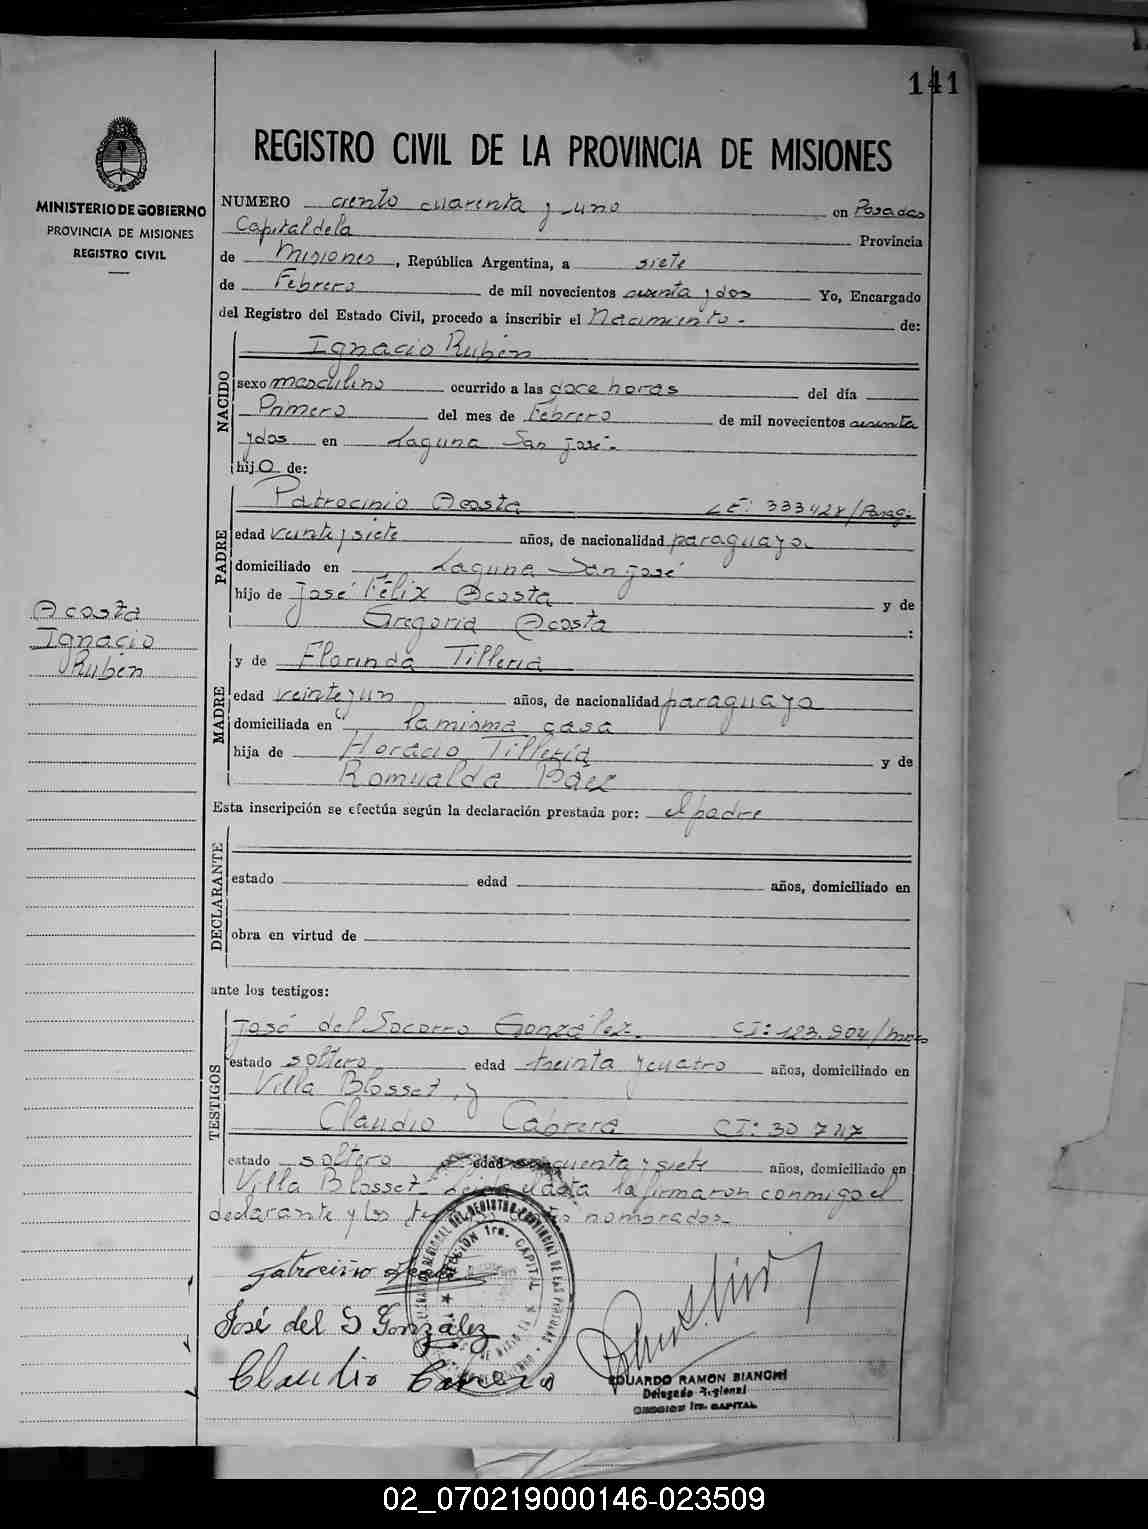 141
REGISTRO CIVIL DE LA PROVINCIA DE MISIONES
MINISTERIO DE GOBIERNO
PROVINCIA DE MISIONES
REGISTRO CIVIL
NUMERO ciento cuarenta y uno en Posadas
Capital de la Provincia
de Misiones, República Argentina, a siete
de Febrero de mil novecientos sesenta y dos Yo, Encargado
del Registro del Estado Civil, procedo a inscribir el Nacimiento.- de:
NACIDO
Ignacio Rubén
sexo masculino ocurrido a las doce horas del día
Primero del mes de Febrero de mil novecientos sesenta
y dos en Laguna San José.-
hijO de:
PADRE
Patrocinio Acosta LE: 333428/Parag.
edad veinte y siete años, de nacionalidad paraguaya.
domiciliado en Laguna San José
hijo de José Félix Acosta y de
Gregoria Acosta :
Acosta
Ignacio
Rubén
MADRE
y de Florinda Tillería
edad veinte y un años, de nacionalidad paraguaya
domiciliada en la misma casa
hija de Horacio Tillería y de
Romualda Báez
Esta inscripción se efectúa según la declaración prestada por: el padre
DECLARANTE
estado edad años, domiciliado en
obra en virtud de
ante los testigos:
TESTIGOS
José del Socorro González. CI: 123.904/
estado soltero edad treinta y cuatro años, domiciliado en
Villa Blosset, y
Claudio Cabrera CI: 30 747
estado soltero edad cincuenta y siete años, domiciliado en
Villa Blosset- Leída el acta la firmaron conmigo el
declarante y los testigos nombrados.-
Patrocinio Acosta
José del S González
Claudio Cabrera
EDUARDO RAMON BIANCHI
Delegado Regional
SECCION 1ra. CAPITAL
02_070219000146-023509